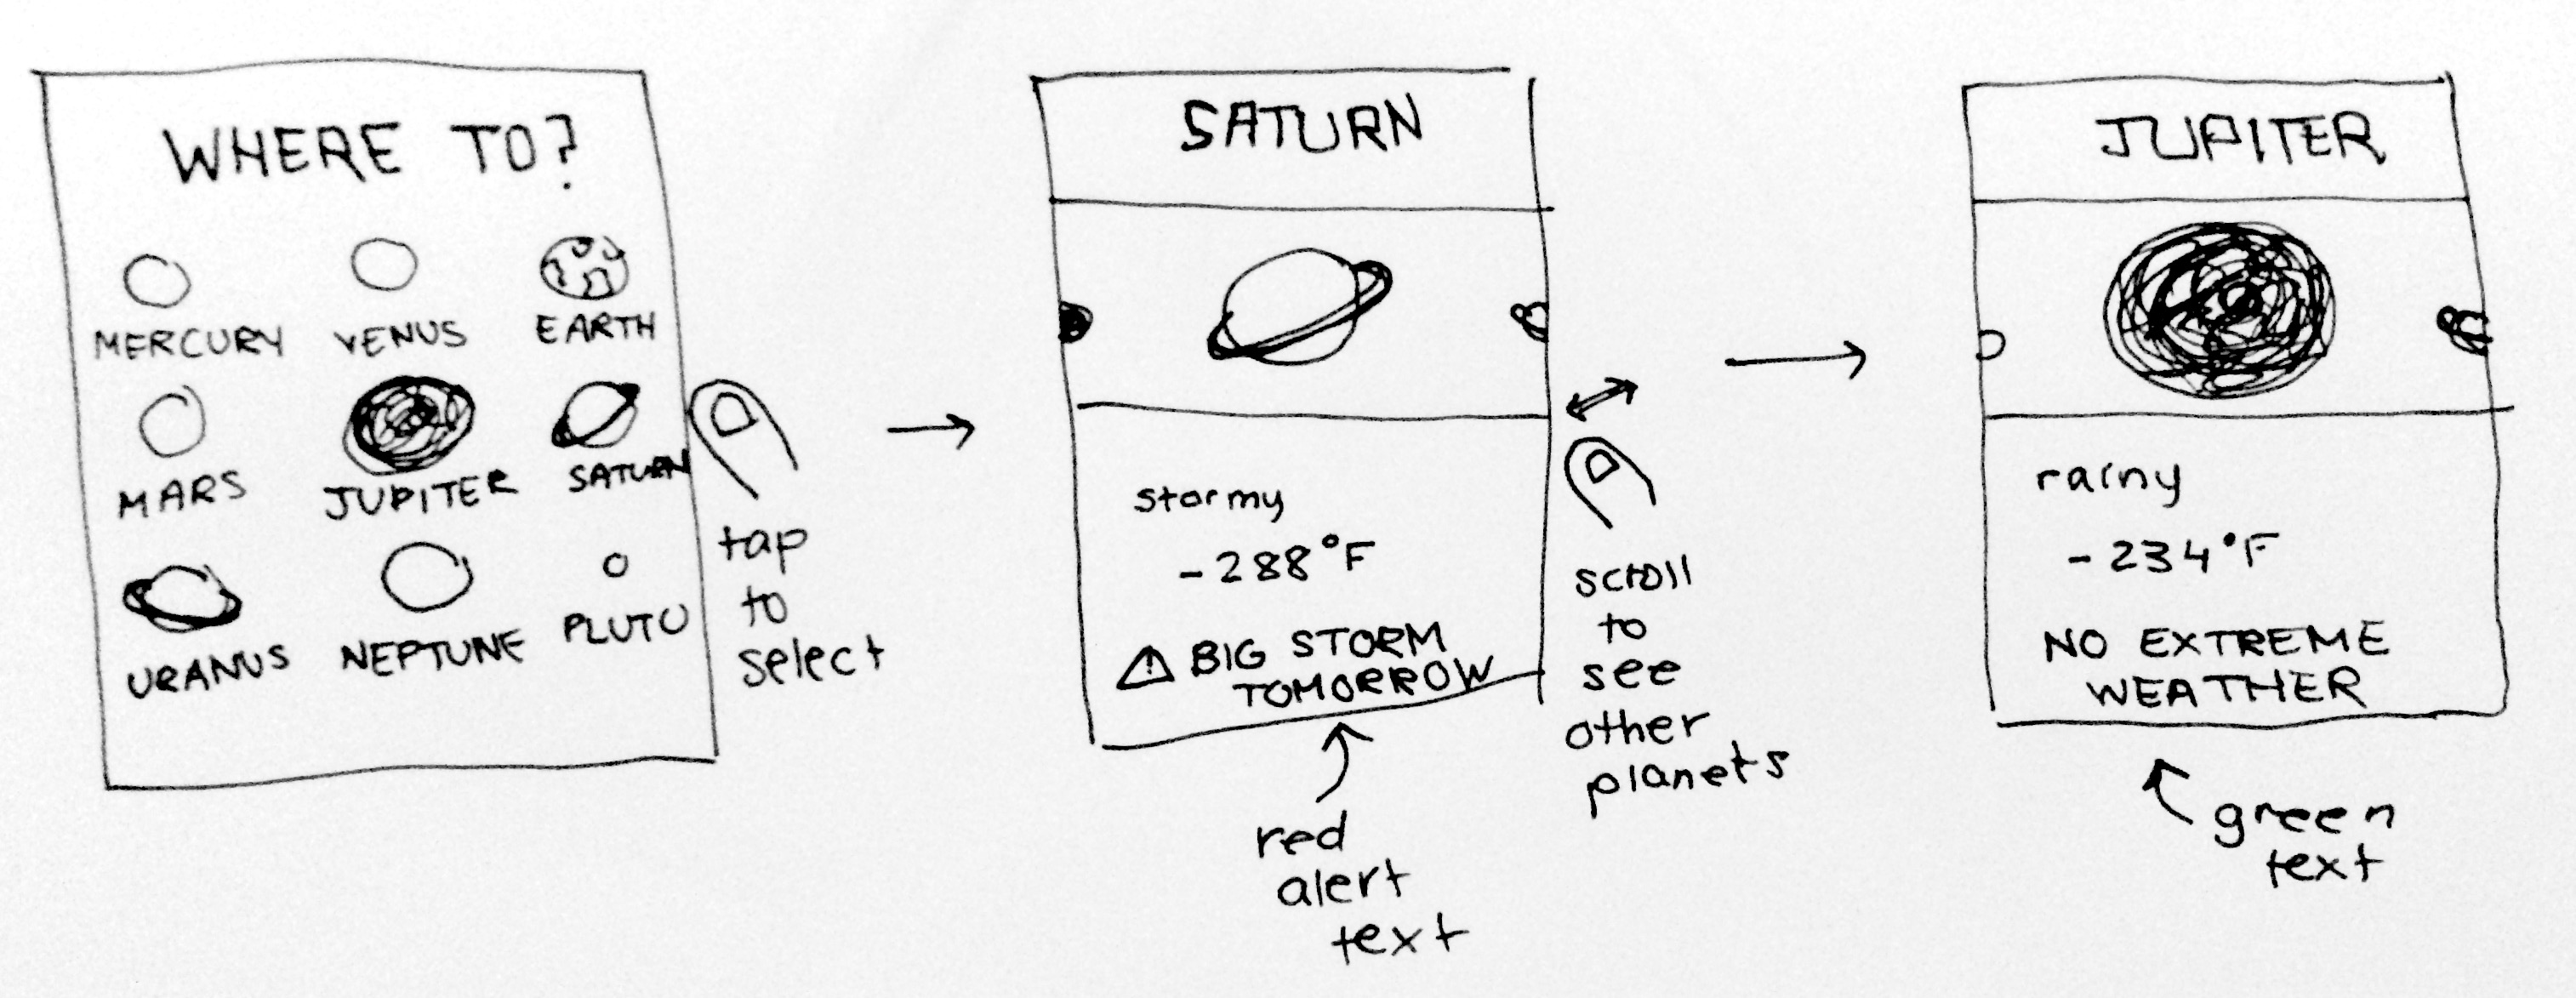 WHERE TO?
MERCURY VENUS EARTH
MARS JUPITER SATURN
URANUS NEPTUNE PLUTO
tap
to
select
SATURN
stormy
-288°F
⚠ BIG STORM
TOMORROW
red
alert
text
scroll
to
see
other
planets
JUPITER
rainy
-234°F
NO EXTREME
WEATHER
green
text